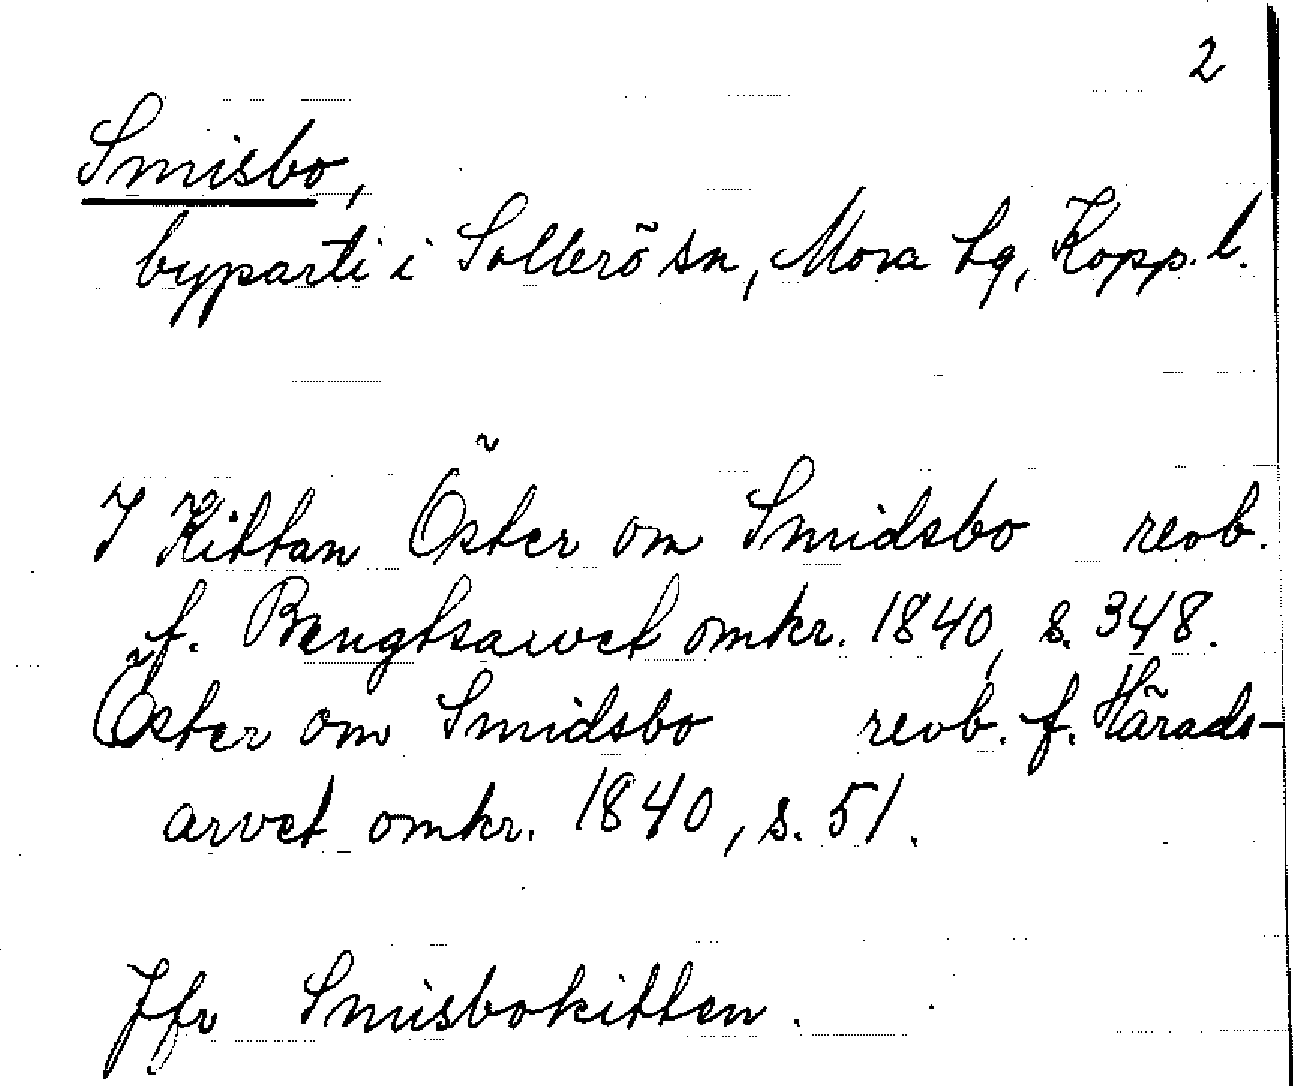 2
Smisbo,
byparti i Sollerö sn, Mora tg, Kopp. l.
I Kittan Öster om Smidsbo revb.
f. Bengtsarvet omkr. 1840, s. 348.
Öster om Smidsbo revb. f. Härads-
arvet omkr. 1840, s. 51.
Jfr Smisbokitten.